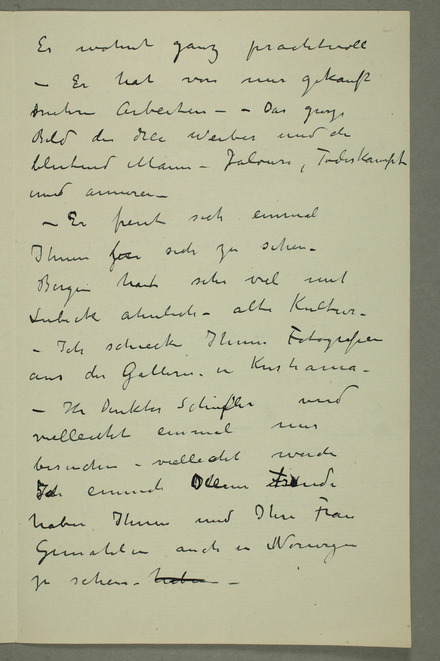 Er wohnt ganz prachtvoll
– Er hat von mir gekauft
Arbeiten – – Das
Bild der drei Weiber und der
blutend Mann – Jalousi, Todeskampf
und anneren –
– Er freut sich einmal
Ihnen sich zu sehen –
Bergen hat sehr viel mit
Lubeck ahnlich – alte Kultur –
– Ich schicke Ihnen Fotografien
aus der Gallerie in Kristiania –
– Hr Direktor Schiefler wird
vielleicht einmal mir
besuchen – vielleicht werde
Ich einmal
haben Ihnen und Ihre Frau
Gemahlin auch in Norwegen
zu sehen – haben –